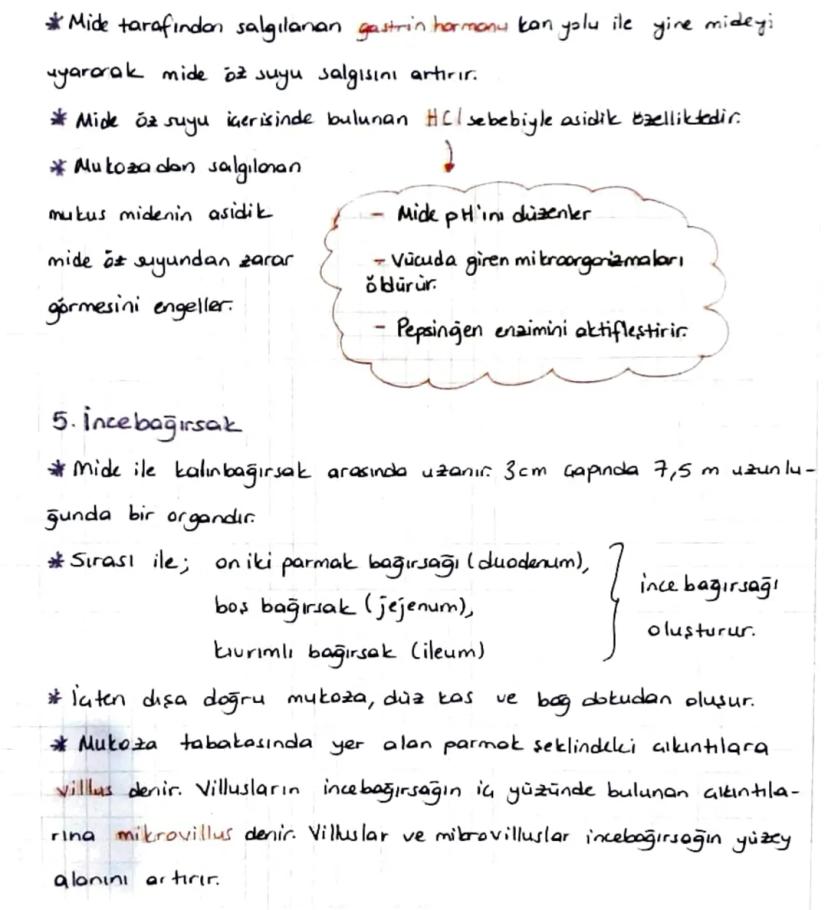 * Mide tarafından salgılanan gastrin hormonu kan yolu ile yine mideyi
uyararak mide öz suyu salgısını artırır.
* Mide öz suyu içerisinde bulunan HCl sebebiyle asidik özelliktedir.
* Mukozadan salgılanan
mukus midenin asidik
mide öz suyundan zarar
görmesini engeller.
- Mide pH'ını düzenler
- Vücuda giren mikroorganizmaları
öldürür.
- Pepsinojen enzimini aktifleştirir.
5. İncebağırsak
* Mide ile kalınbağırsak arasında uzanır. 3cm çapında 7,5 m uzunlu-
ğunda bir organdır.
* Sırası ile; on iki parmak bağırsağı (duodenum),
boş bağırsak (jejenum),
kıvrımlı bağırsak (ileum)
ince bağırsağı
oluşturur.
* İçten dışa doğru mukoza, düz kas ve bağ dokudan oluşur.
* Mukoza tabakasında yer alan parmak şeklindeki çıkıntılara
villus denir. Villusların incebağırsağın iç yüzünde bulunan çıkıntıla-
rına mikrovillus denir. Villuslar ve mikrovilluslar incebağırsağın yüzey
alanını artırır.